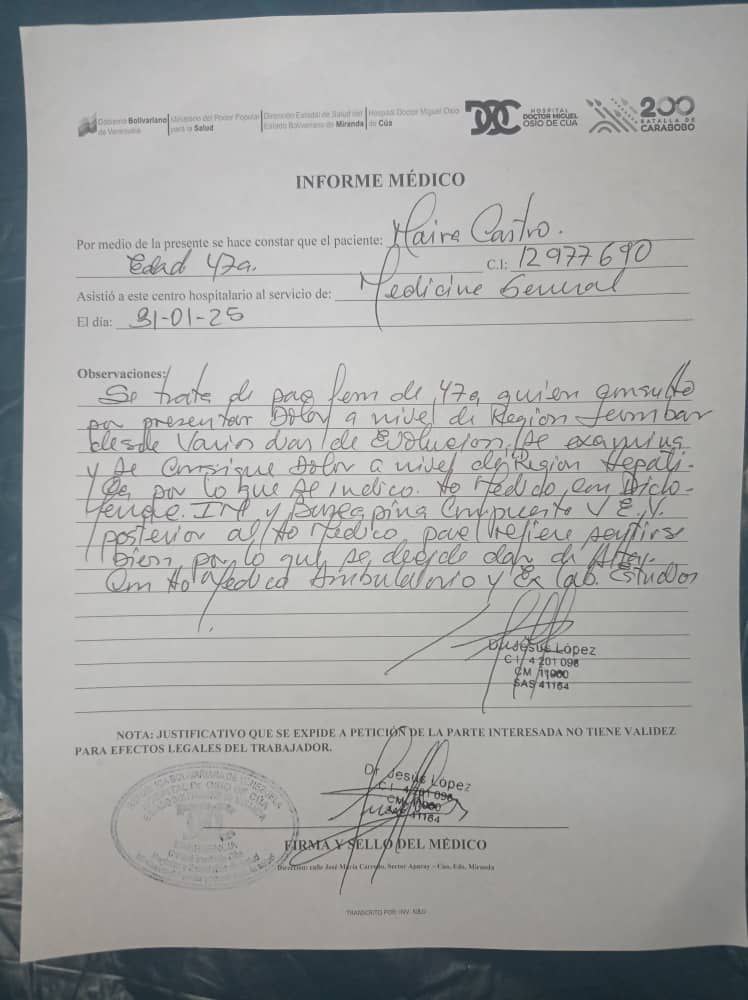 Gobierno Bolivariano de Venezuela
Ministerio del Poder Popular para la Salud
Dirección Estadal de Salud del Estado Bolivariano de Miranda
Hospital Doctor Miguel Osio de Cúa
HOSPITAL
DOCTOR MIGUEL
OSIO DE CUA
200
BATALLA DE
CARABOBO
INFORME MÉDICO
Por medio de la presente se hace constar que el paciente: Maira Castro.
Edad 47a. C.I: 12977690
Asistió a este centro hospitalario al servicio de: Medicine General
El día: 31-01-25
Observaciones:
Se trata de pac fem de 47a quien consulto
por presentar Dolor a nivel de Region Lumbar
desde varios dias de Evolucion, se examina
y se consigue Dolor a nivel de Region Hepati-
ca por lo que se indico. tto Medico con Diclo-
fenac. y Compuesto V.E.V.
posterior al tto Médico, pac refiere sentirse
bien, por lo que se decide dar de Alta
Con tto Medico Ambulatorio y Ex lab. Estudios
Dr. Jesús López
C.I 4 201 096
CM 11900
SAS 41164
NOTA: JUSTIFICATIVO QUE SE EXPIDE A PETICIÓN DE LA PARTE INTERESADA NO TIENE VALIDEZ
PARA EFECTOS LEGALES DEL TRABAJADOR.
Dr. Jesús López
C.I 4 201 096
41164
FIRMA Y SELLO DEL MÉDICO
Dirección: calle José María Carreño, Sector Aparay – Cúa, Edo. Miranda
TRANSCRITO POR: INV. N&G